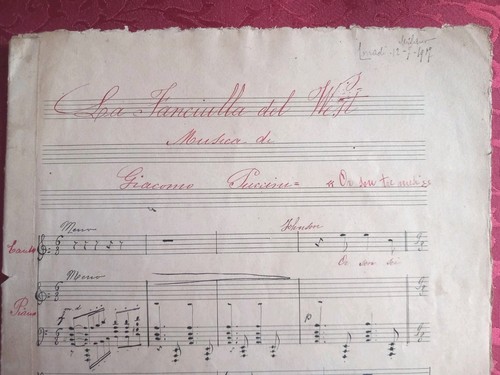 Milano
Lunedì 12-7-1917
La Fanciulla del West
Musica di
Giacomo Puccini = « Or son tre mesi »
Meno
Canto
Or son sei
Meno
Piano
p